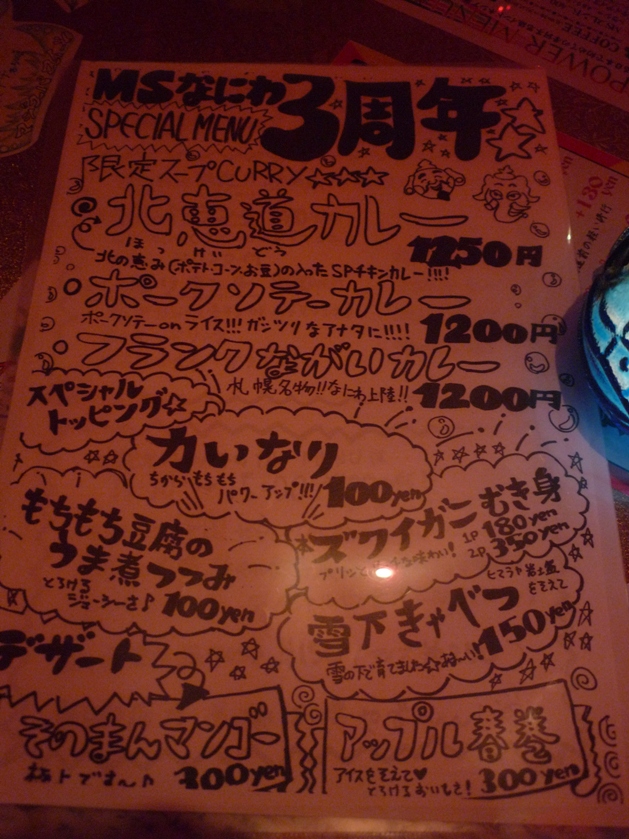 MSなにわ3周年
SPECIAL MENU
限定スープCURRY☆☆☆
北恵道カレー
ほっ けい どう
1250円
北の恵み(ポテト・コーン、お豆)の入ったSPチキンカレー!!!!
ポークソテーカレー
ポークソテーonライス!!!ガッツリなアナタに!!!!
1200円
フランクながいカレー
札幌名物!!なにわ上陸!!
1200円
スペシャル
トッピング☆
力いなり
ちから もちもち
パワーアップ!!!
100yen
もちもち豆腐の
うま煮つつみ
とろける
ジューシーさ♪
100yen
ズワイガニむき身
1P 180yen
2P 350yen
プリッと
味わい!
ヒマラヤ岩塩
をそえて
雪下きゃべつ
150yen
雪の下で育てました☆
デザート
そのまんマンゴー
300yen
アップル春巻
アイスをそえて♥
とろけるおいしさ!
300yen
POWER MENE
COFFEE
+130
yen